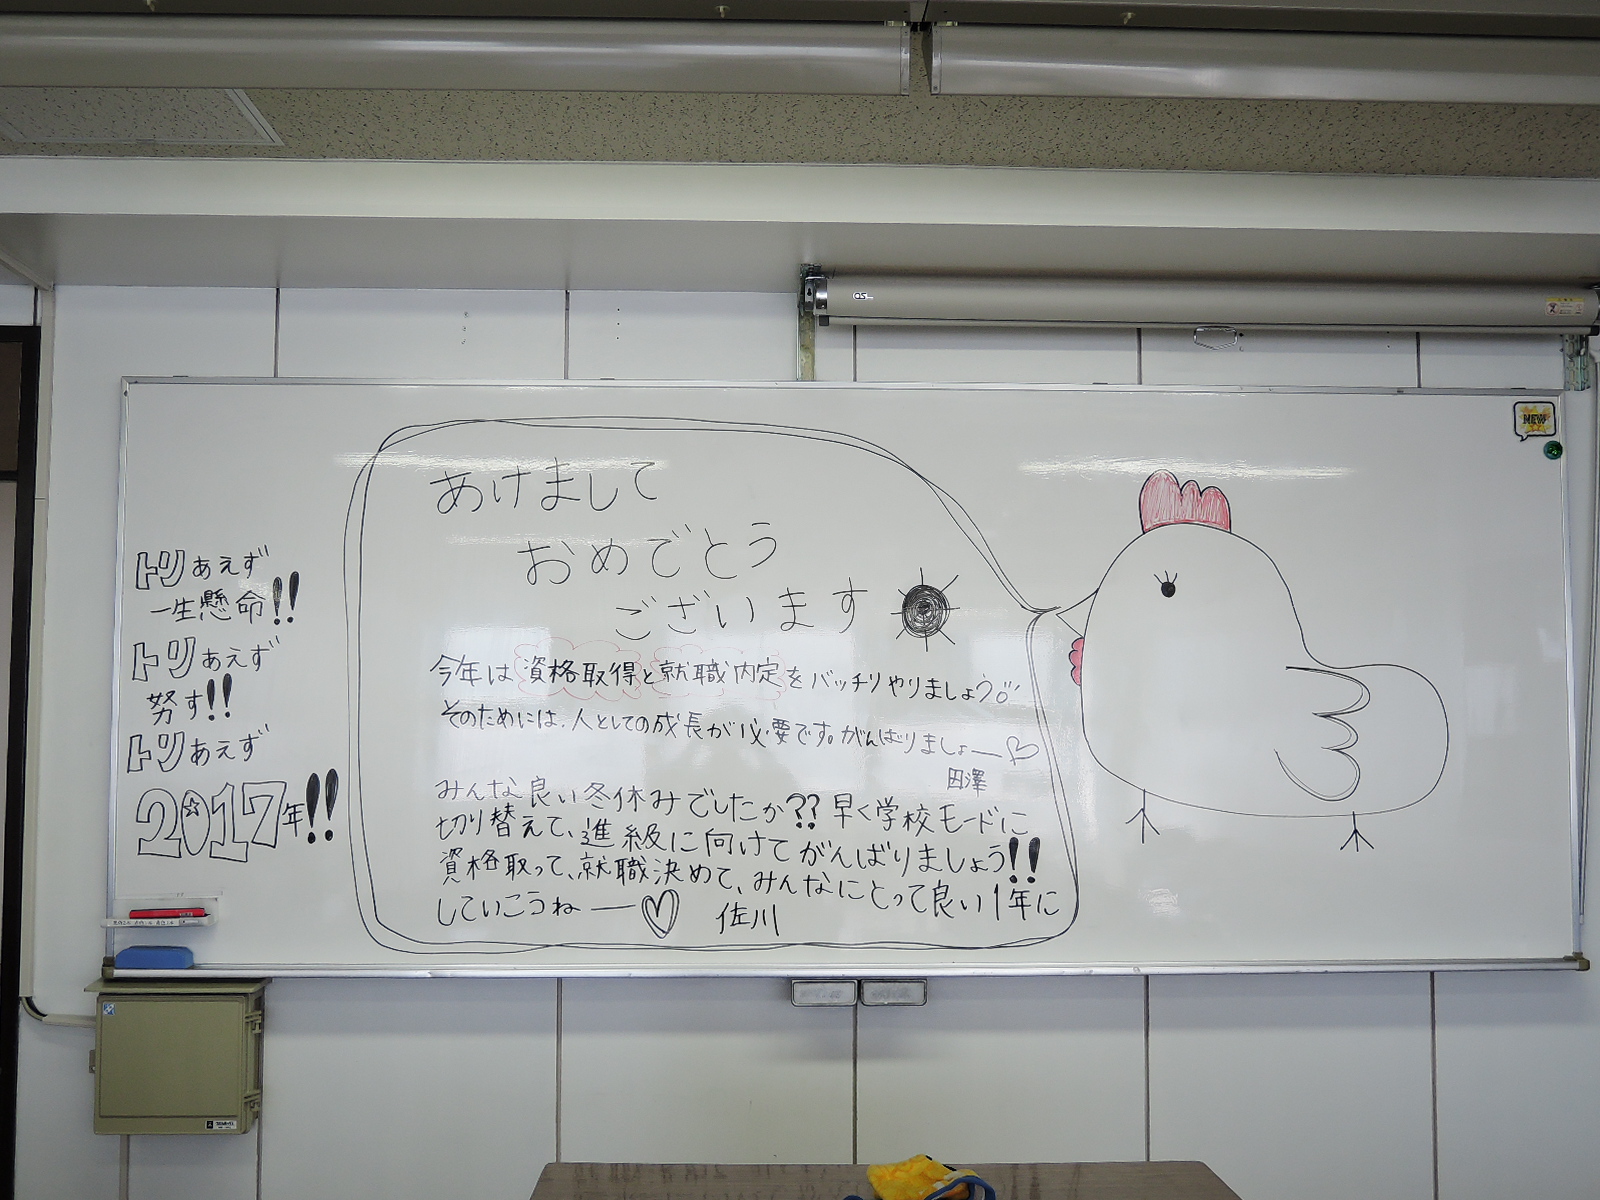 トリあえず
一生懸命!!
トリあえず
努す!!
トリあえず
2017年!!
あけまして
おめでとう
ございます
今年は資格取得と就職内定をバッチリやりましょう。
そのためには、人としての成長が必要です。がんばりましょー♡
田澤
みんな良い冬休みでしたか??早く学校モードに
切り替えて、進級に向けてがんばりましょう!!
資格取って、就職決めて、みんなにとって良い1年に
していこうねー♡ 佐川
NEW
OS